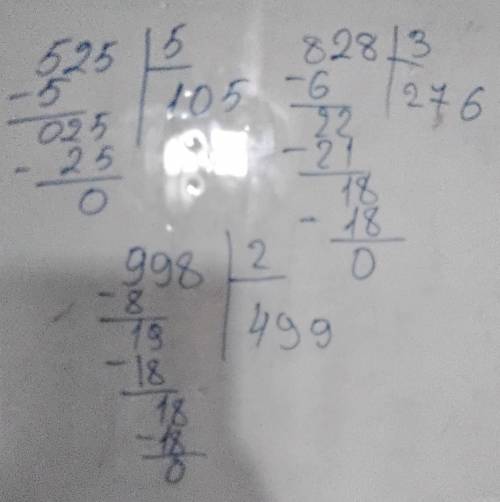 525 | 5
-5 | 105
025
- 25
0
828 | 3
-6 | 276
22
-21
18
- 18
0
998 | 2
-8 | 499
19
-18
18
-18
0